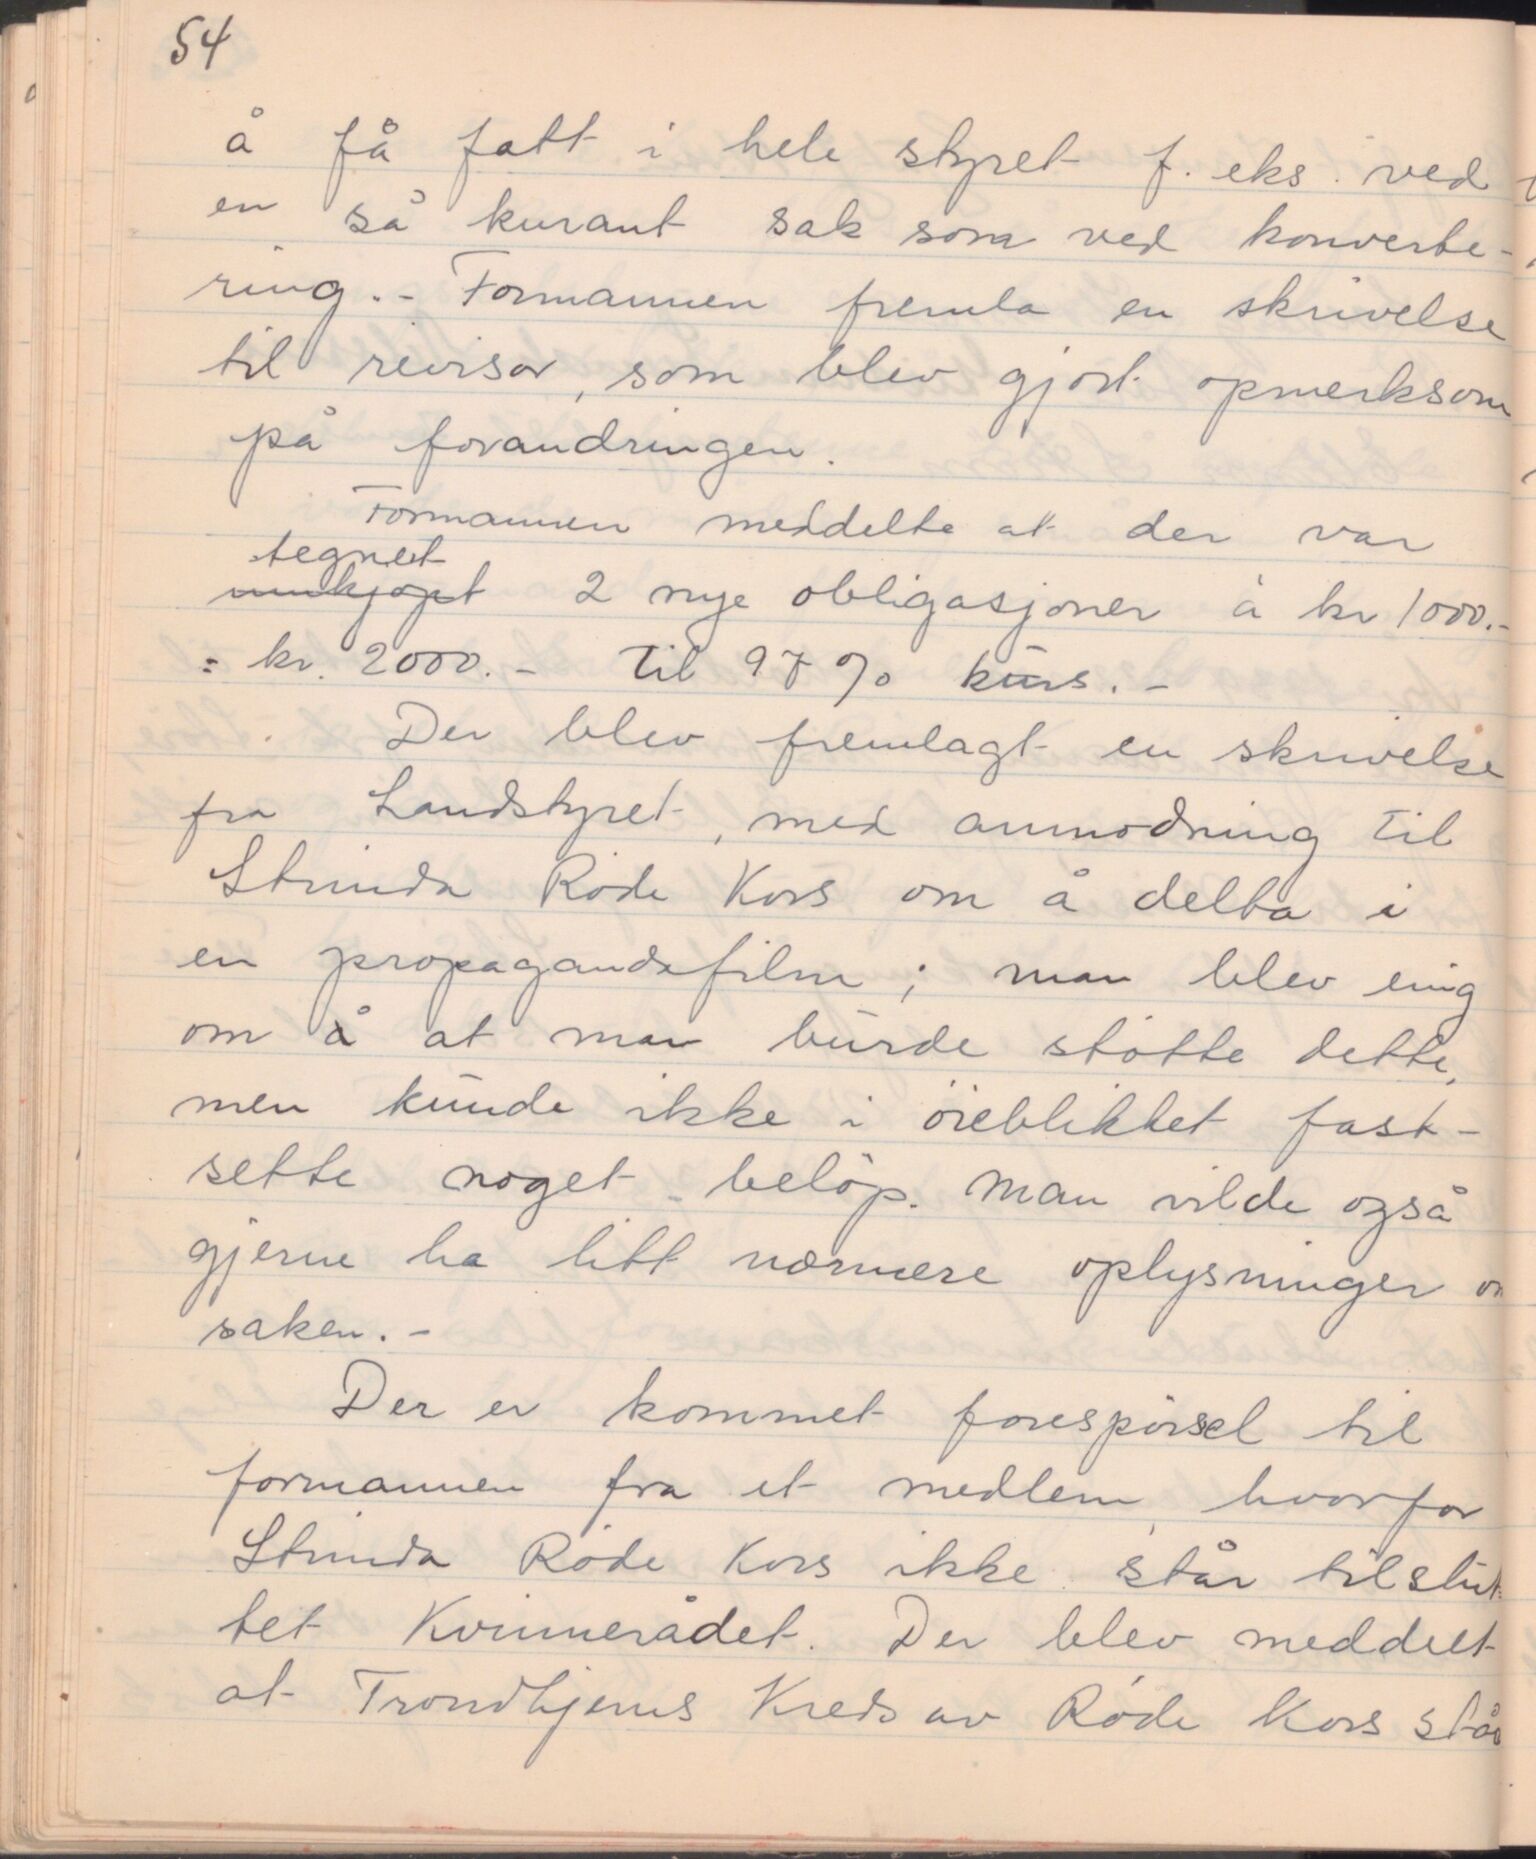 54
å få fatt i hele styret f. eks. ved
en så kurant sak som ved konverte-
ring. - Formannen fremla en skrivelse
til revisor, som blev gjort opmerksom
på forandringen.
Formannen meddelte at der var
tegnet
innkjøpt 2 nye obligasjoner à kr 1000.-
= kr. 2000.- til 97 % kurs. -
Der blev fremlagt en skrivelse
fra Landstyret, med anmodning til
Strinda Røde Kors om å delta i
en propagandafilm ; man blev enig
om å at man burde støtte dette,
men kunde ikke i øieblikket fast-
sette noget beløp. Man vilde også
gjerne ha litt nærmere oplysninger om
saken. -
Der er kommet forespørsel til
formannen fra et medlem, hvorfor
Strinda Røde Kors ikke står tilslut-
tet Kvinnerådet. Der blev meddelt
at Trondhjems Kreds av Røde Kors står